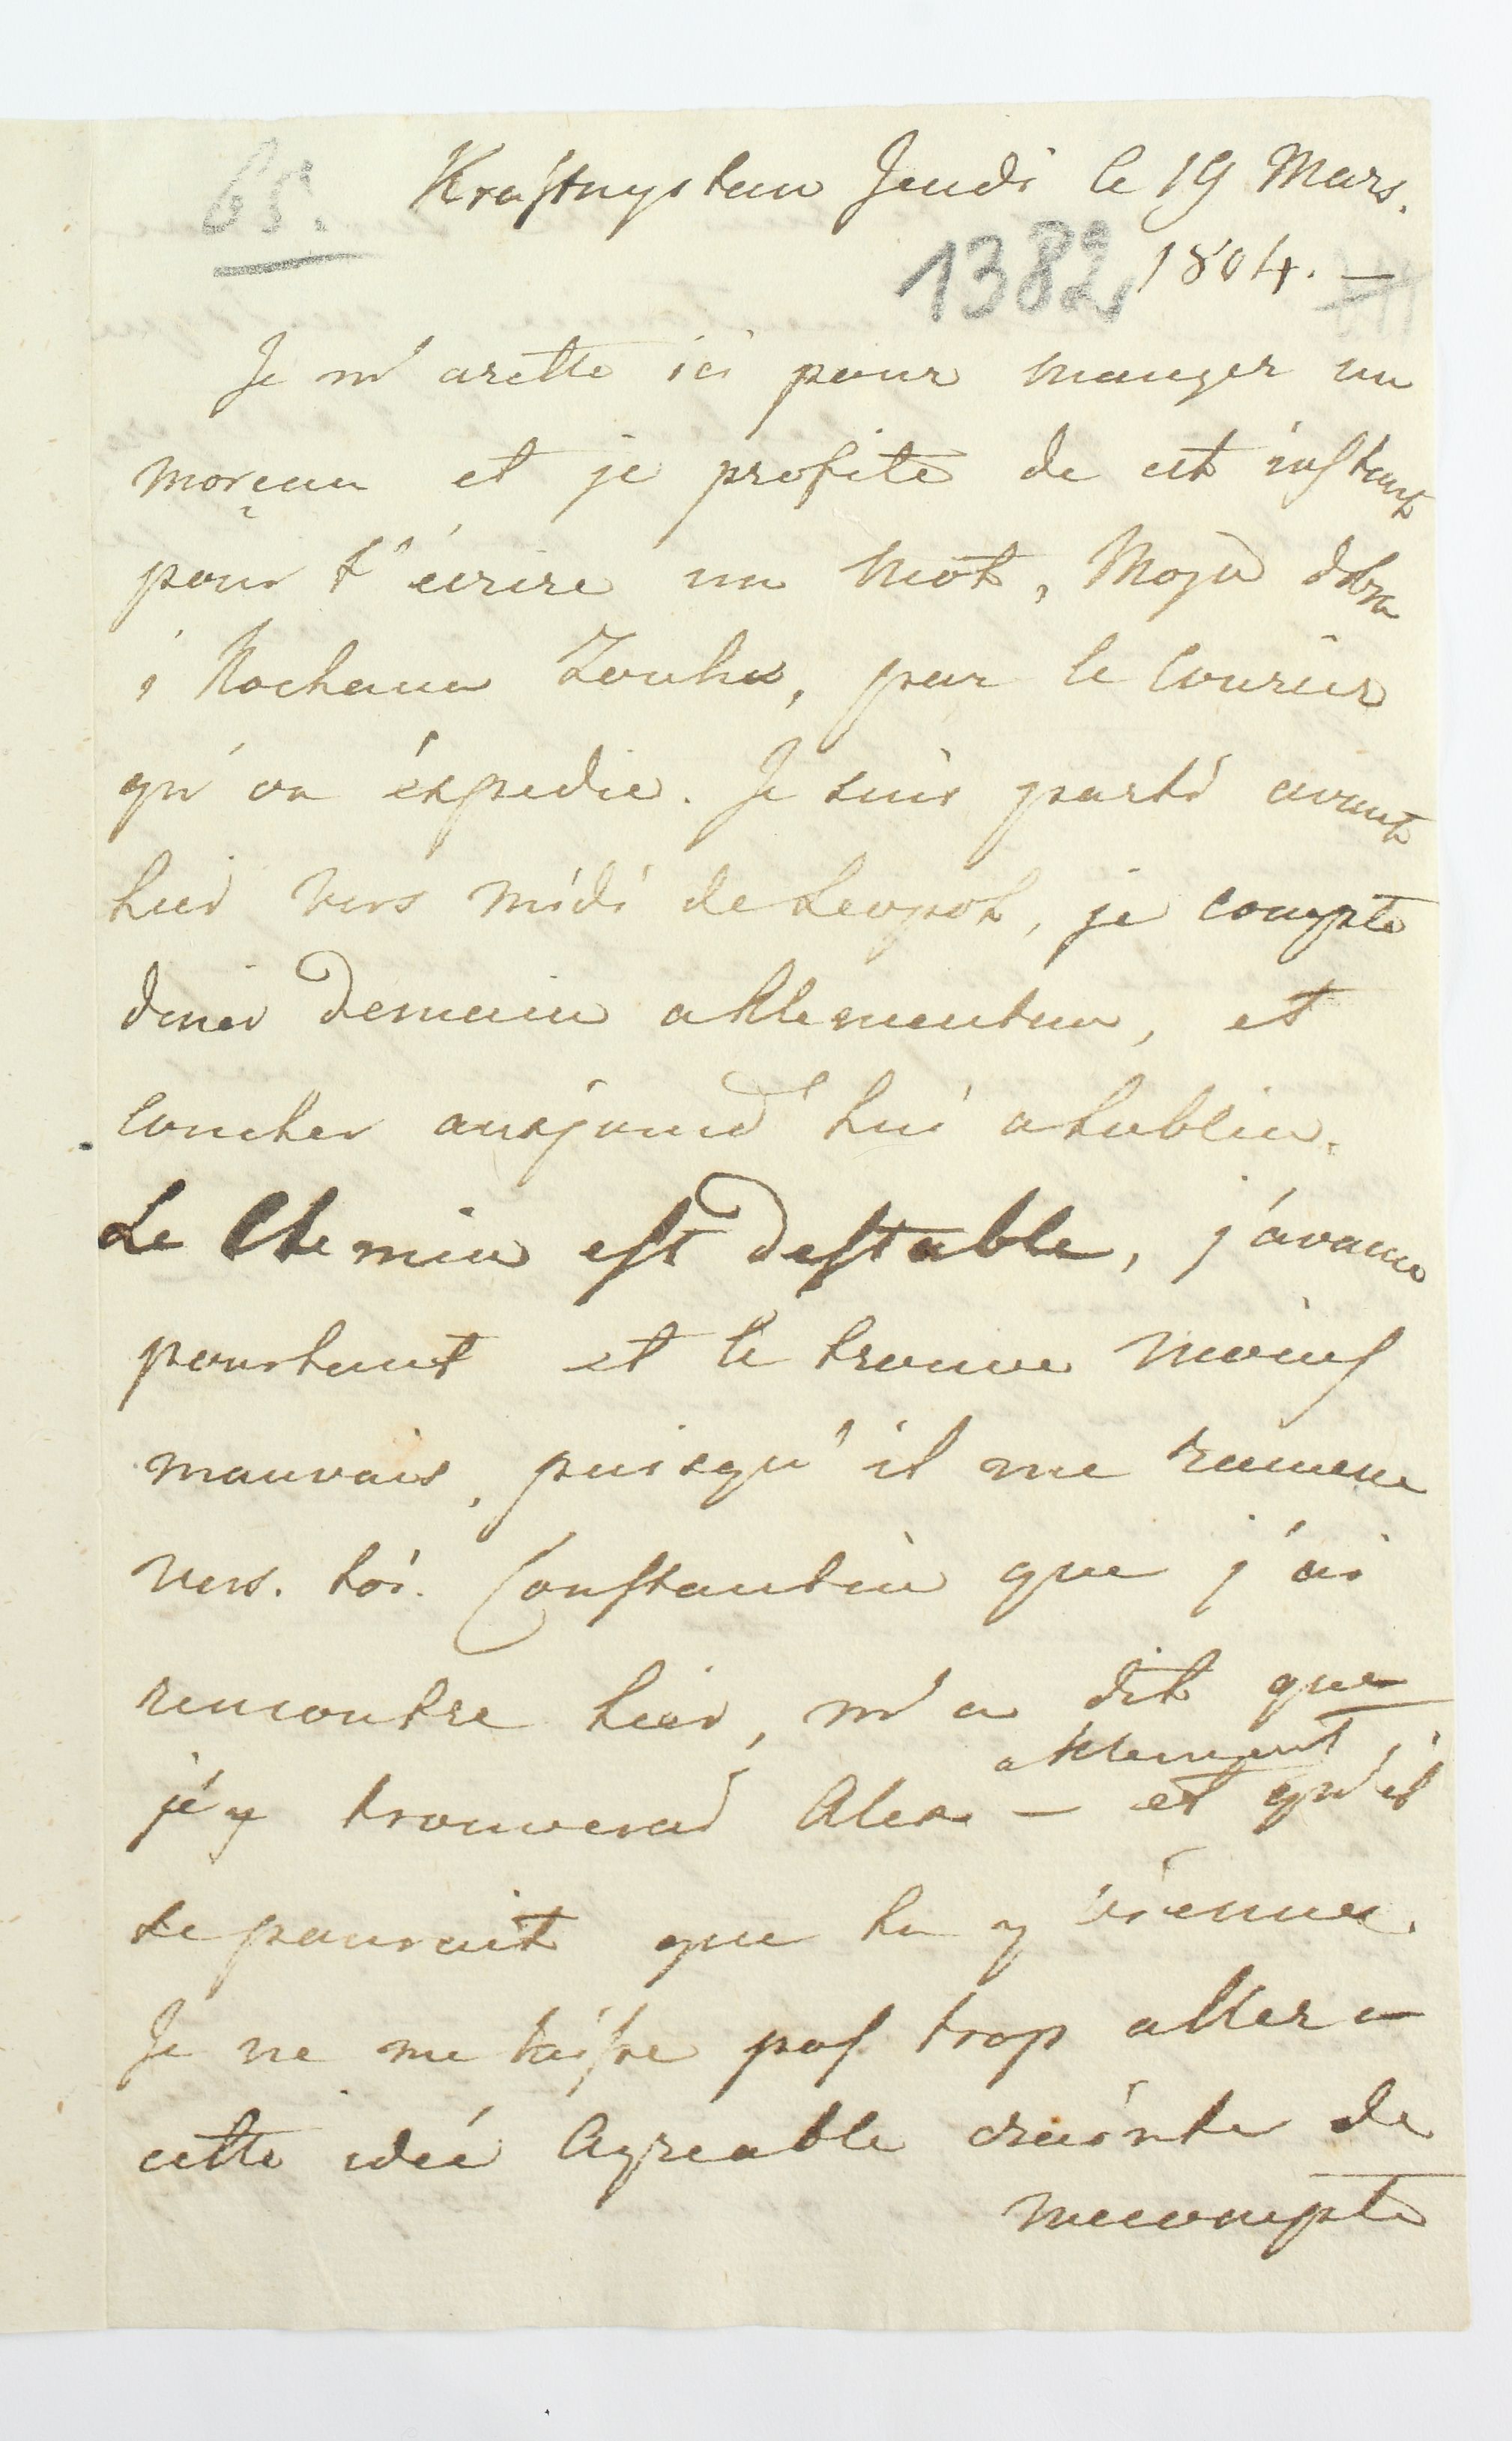 65. Krastnystaw Jeudi le 19 Mars.
1382 1804. —
Je m'arette ici pour manger un
morçeau et je profite de cet instant
pour t'écrire un mot, Moja dobra
i Kochana Zonko, par le Courier
qu'on éxpedie. Je suis parti avant
hier vers midi de Leopol, je compte
diner Demain a Klementow, et
coucher aujourd'hui a Lublin.
Le Chemin est destable, j'avance
pourtant et le trouve moins
mauvais, puisqu'il me ramene
vers toi. Constantin que j'ai
rencontre hier, m'a dit que
a Klement
j'y trouverai Alex. — et qu'il
se pourrait que tu y vienne.
Je ne me laisse pas trop aller a
cette idée Agreable crainte de
mecompte